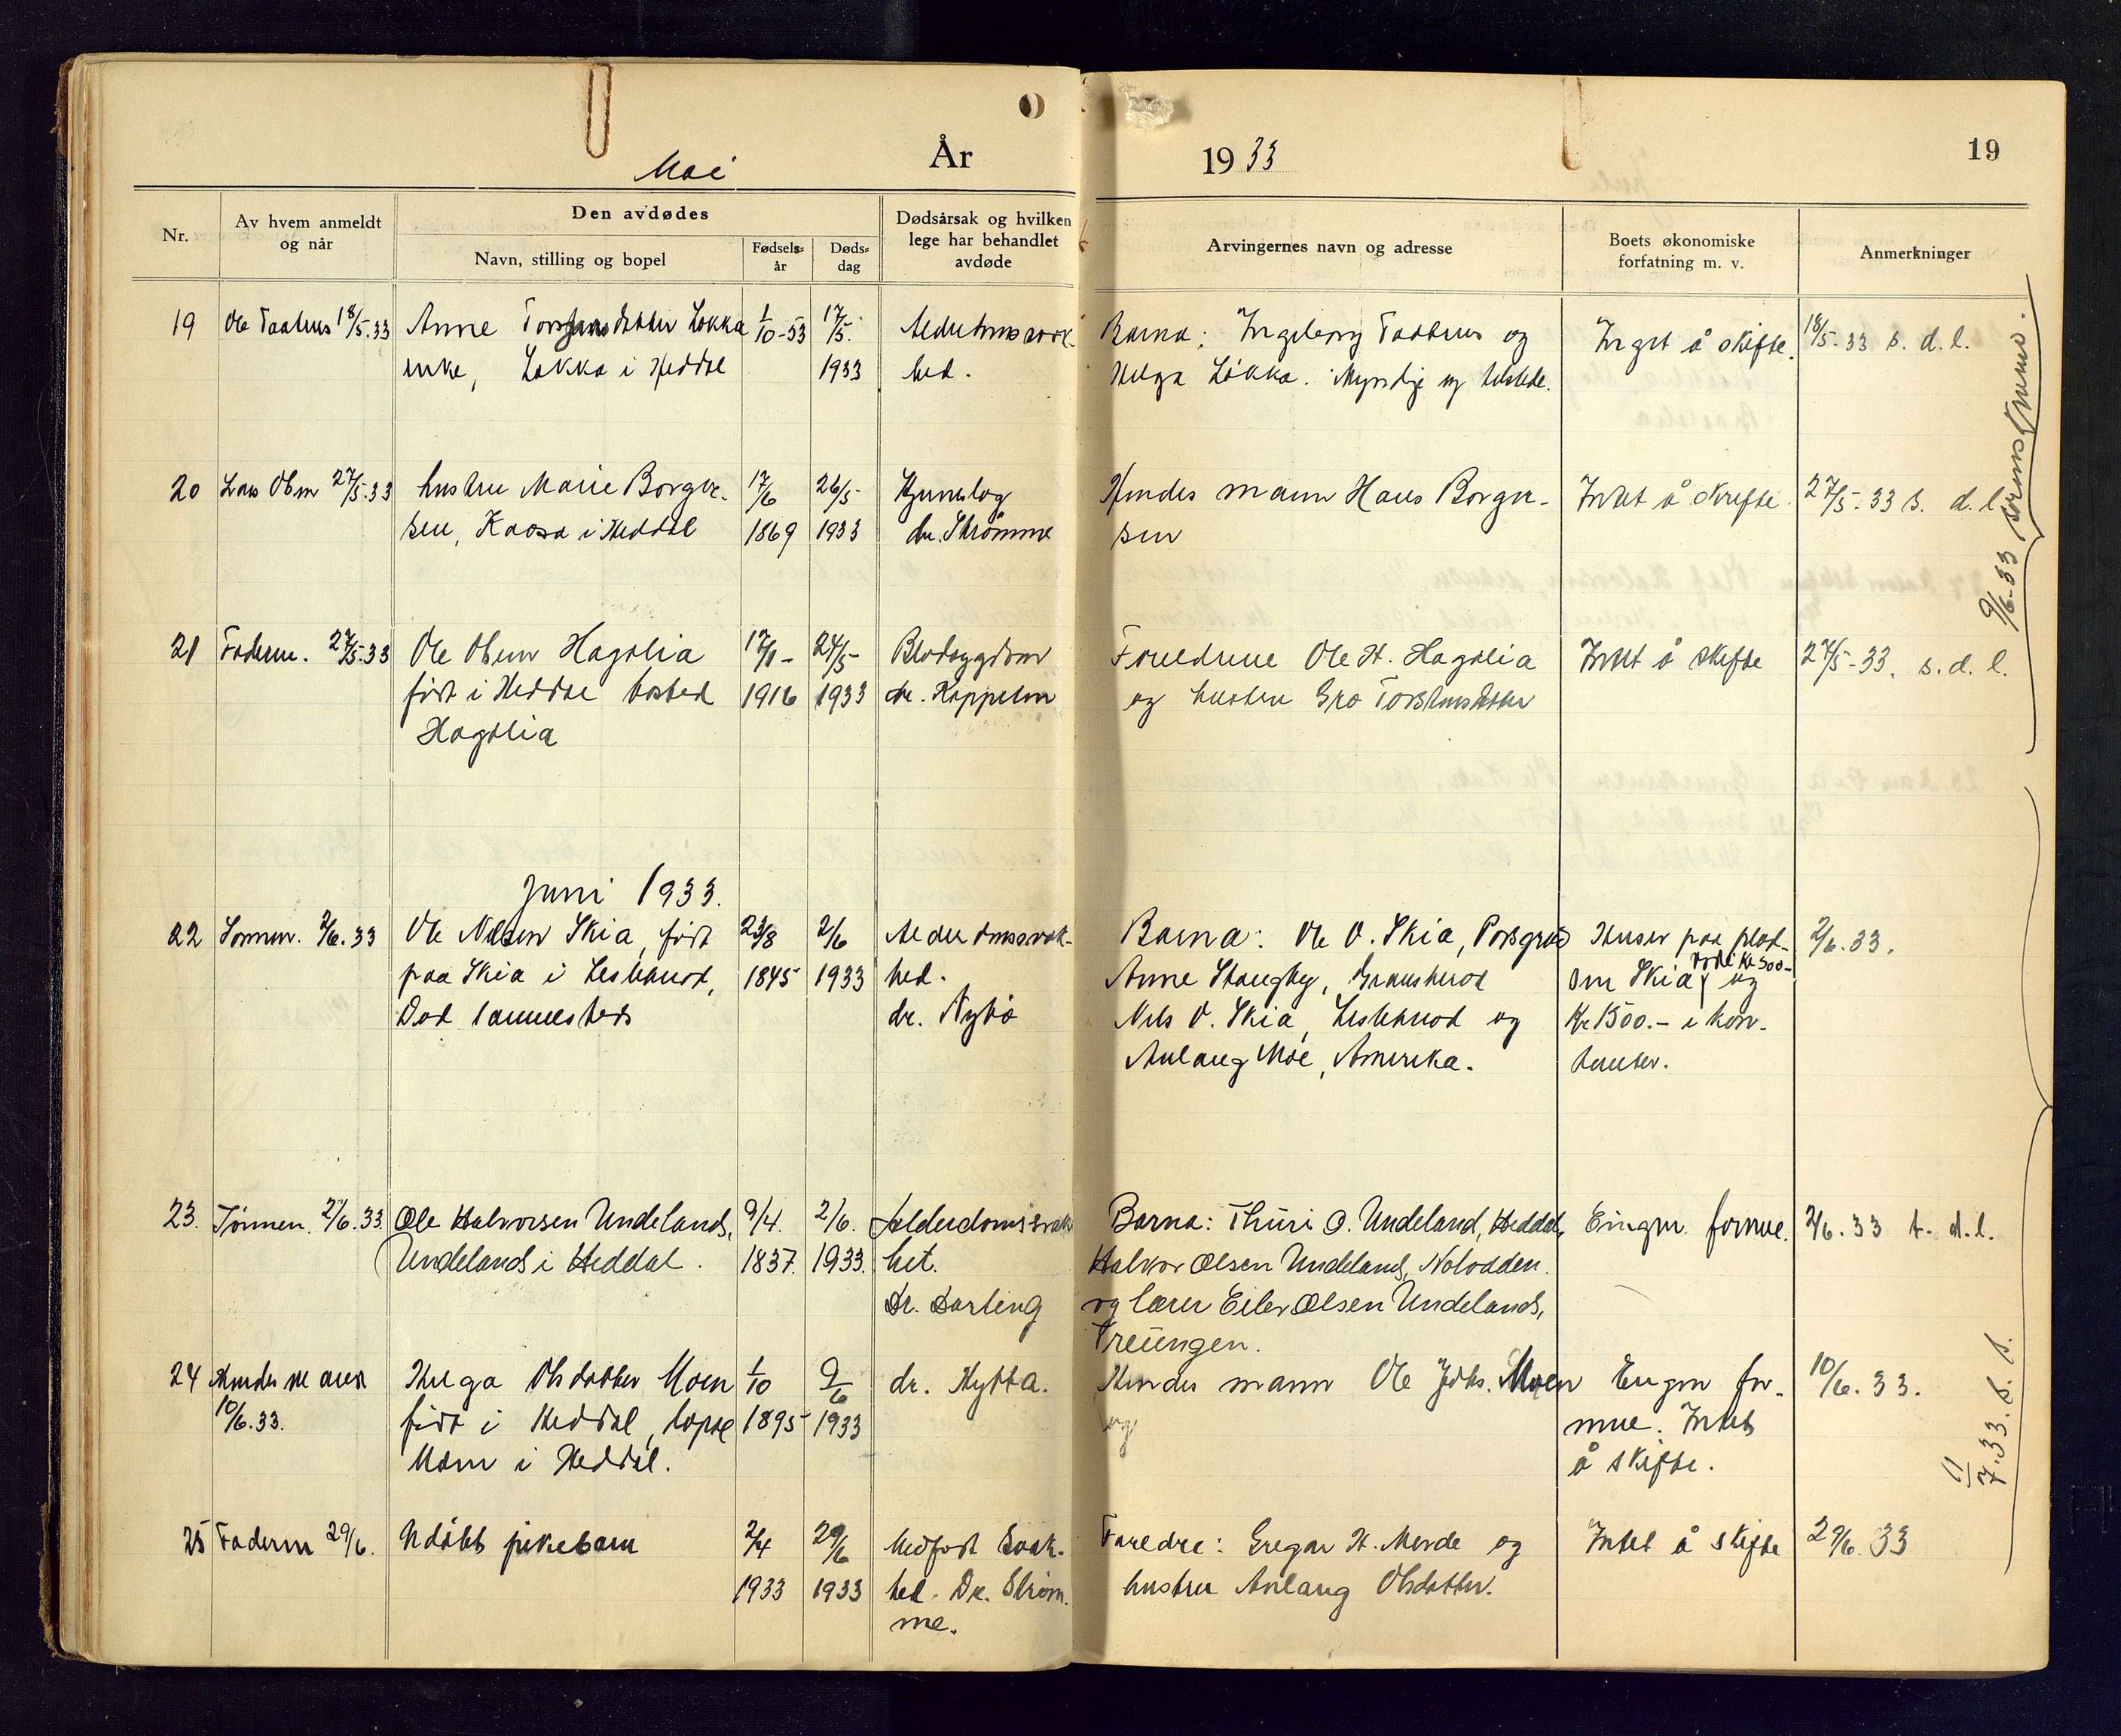 Mai År 1933 19
Nr. Av hvem anmeldt og når Den avdødes Dødsårsak og hvilken lege har behandlet avdøde Arvingernes navn og adresse Boets økonomiske forfatning m. v. Anmerkninger
Navn, stilling og bopel Fødsels= år Døds= dag
19 Ole Taaterus 18/5.33 Anne Torstensdatter Løkka 1/10-53 17/5. Alderdomssvak- Barna: Ingeborg Taaterus og Inget å skifte. 18/5-33 s. d. l.
enke, Løkka i Heddal 1933 hed. Helga Løkka. Myndige og tilstede.
20 Lars Olsen 27/5.33 hustru Marie Borger- 17/6 26/5 Hjerneslag Hendes mann Hans Borger- Intet å skifte 27/5-33 s. d. l.
sen, Kaasa i Heddal 1869 1933 dr. Strømme sen
9/6-33
21 Faderen. 27/5.33 Ole Olsen Hagolia 17/1- 24/5- Blodsygdom Foreldrene Ole H. Hagolia Intet å skifte 27/5-33. s. d. l.
født i Heddal bosted 1916 1933 dr. Kappelen og hustru Gro Torstensdatter
Hagolia
Juni 1933.
22 Sønnen. 2/6.33 Ole Nilsen Skia, født 23/8 2/6 Alderdomssvak- Barna: Ole O. Skia, Porsgrud Huser paa plad- 2/6.33.
paa Skia i Lisleherod, 1845 1933 hed. Anne Stangeby, Gransherod sen Skia verdi kr 500- og
Død sammesteds dr. Nybø Nils O. Skia, Lisleherod og Kr 1500.- i kon-
Aslaug Moe, Amerika. tanter.
23. Sønnen. 2/6.33. Ole Halvorsen Undelands, 9/4. 2/6. Alderdomssvak Barna: Thuri O. Undeland, Heddal, Eingen formue. 2/6.33 s. d. l.
Undelands i Heddal. 1837. 1933. het. Halvor Olsen Undelands, Notodden.
Dr. Darling og lærer Eilev Olsen Undelands,
Treungen.
24 Hendes mann Helga Olsdatter Moen 1/10 9/6 dr. Hytta. Hendes mann Ole Johs. Moen Engen for- 10/6.33.
10/6.33. født i Heddal, bopel 1895 1933 og mue. Intet
Moen i Heddal. å skifte.
1/7.33. s. s.
25 Faderen 29/6. Udøbt pikebarn 2/4 29/6 Medfødt Svak- Foreldre: Gregar H. Merde og Intet å skifte 29/6.33
1933 1933 hed. Dr. Strøm- hustru Aslaug Olsdatter.
me.